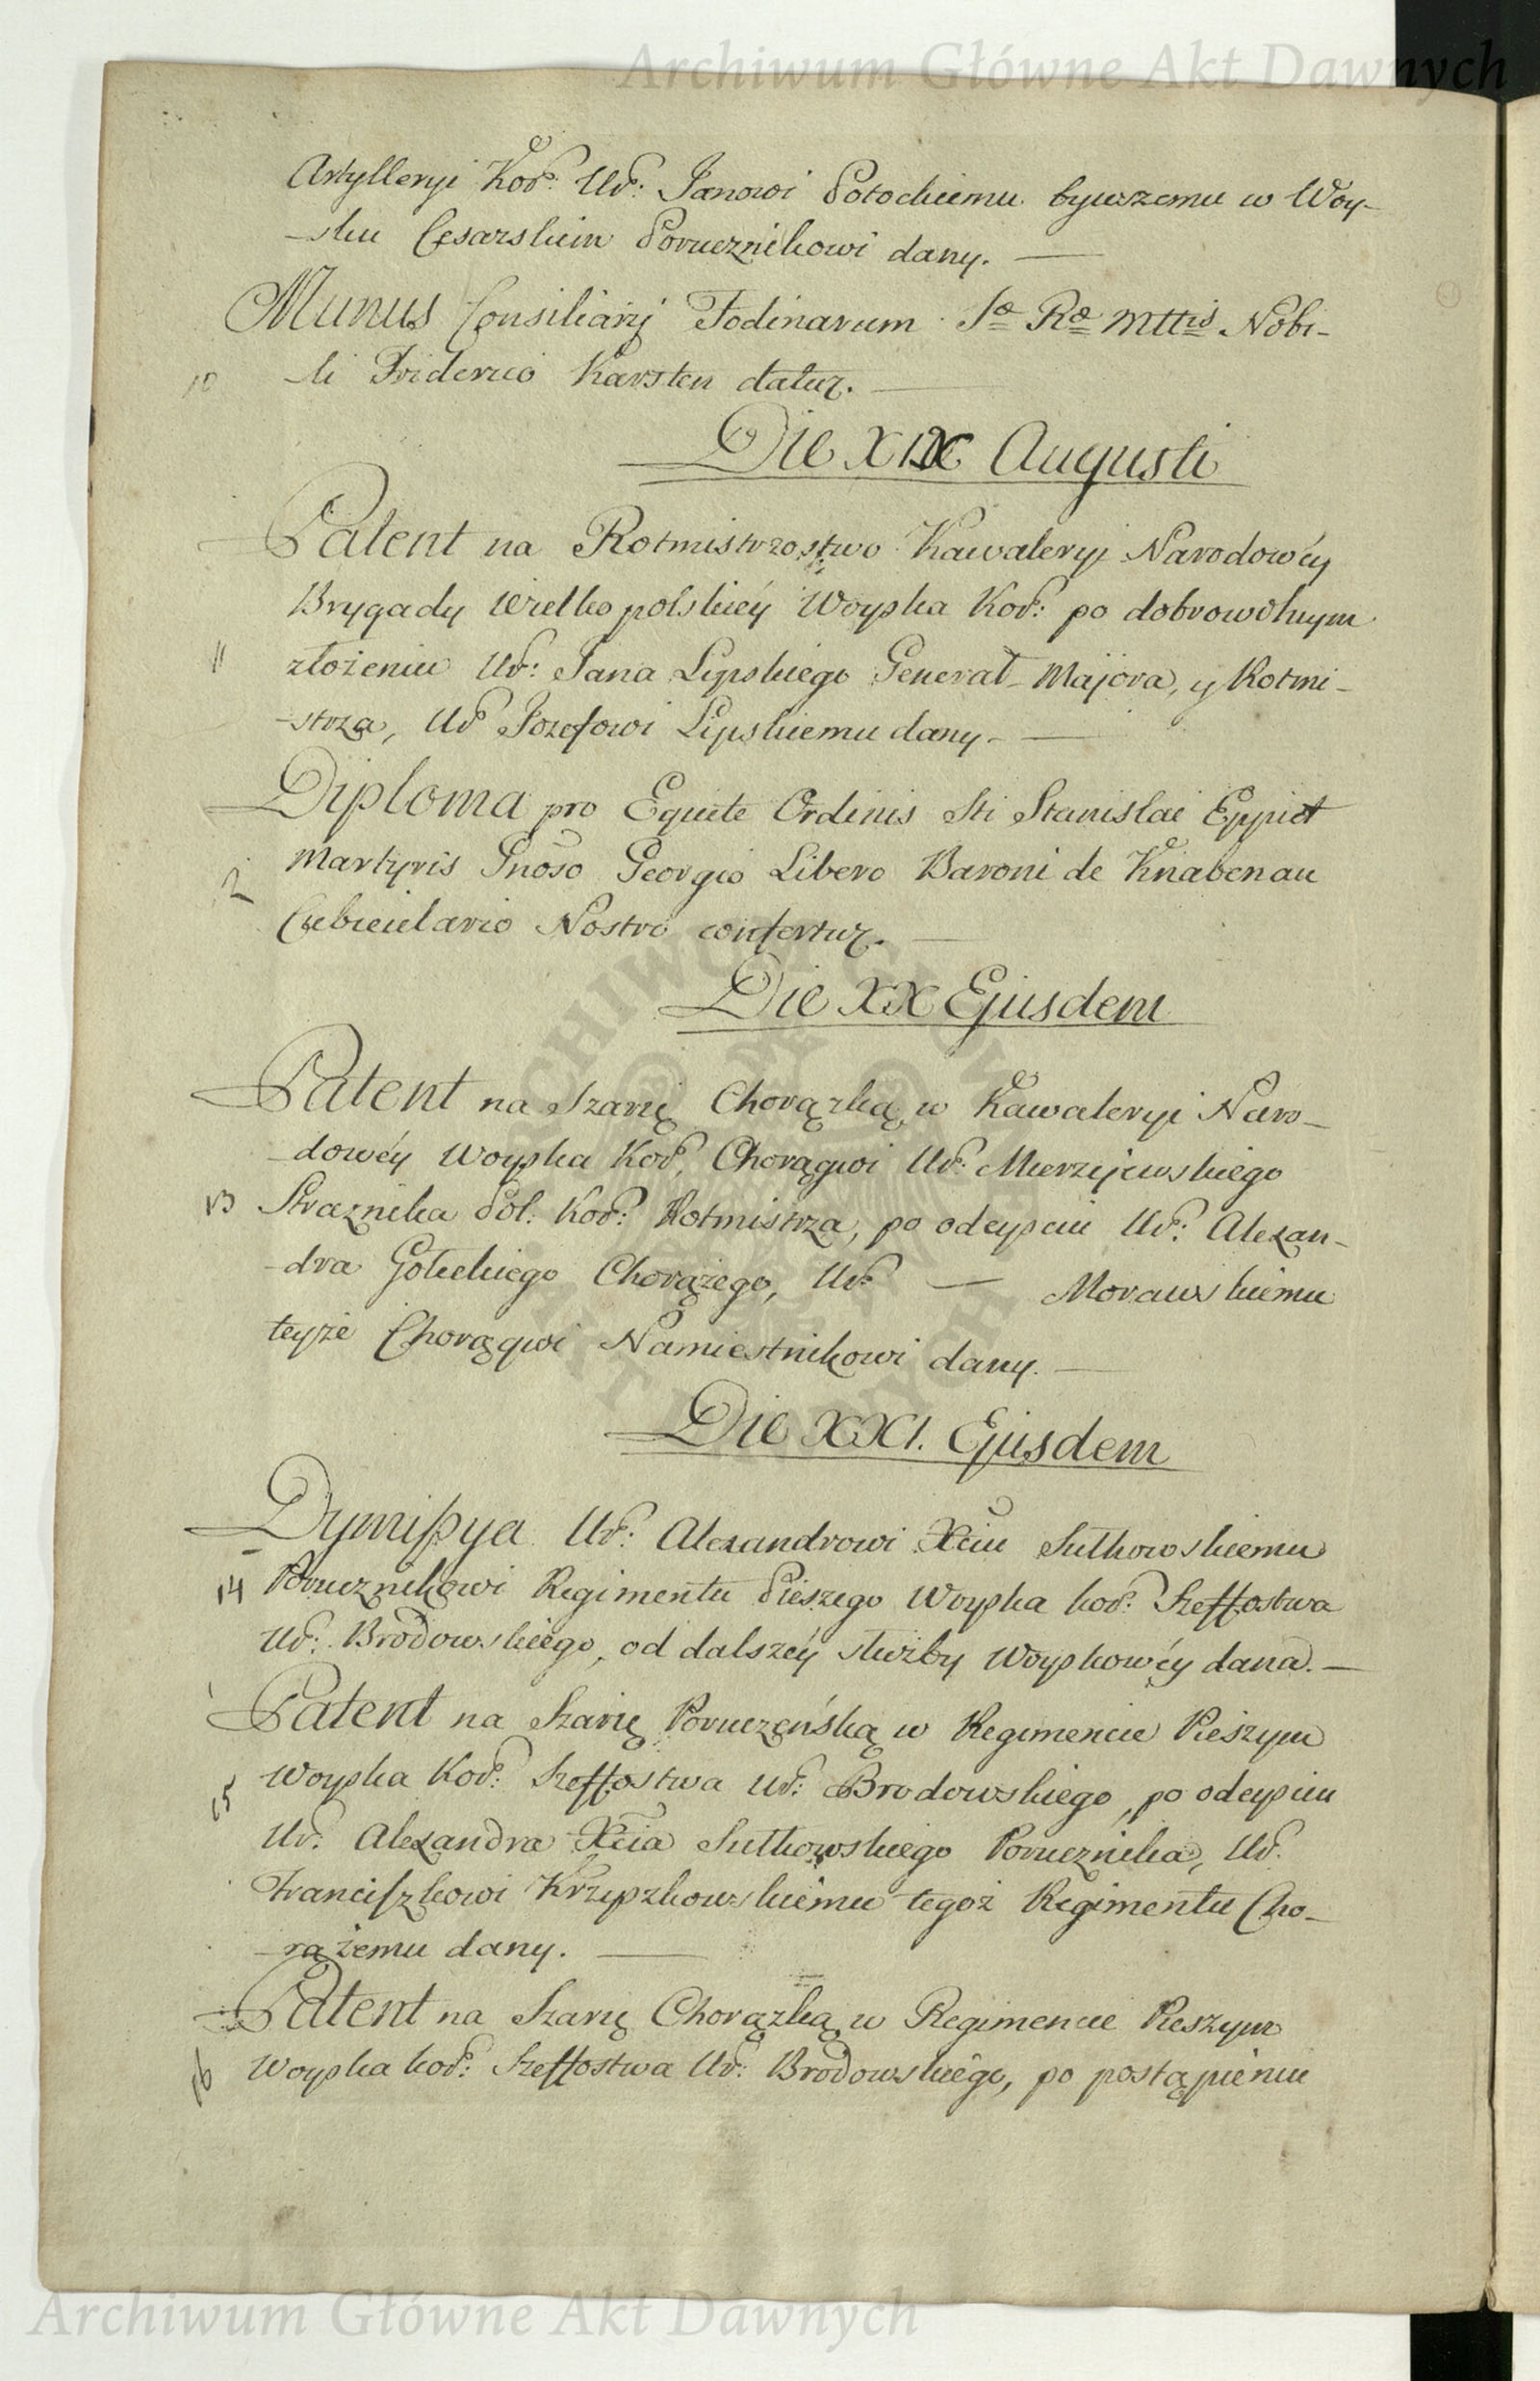 Archiwum Główne Akt Dawnych
Artylleryi Kor: Ur: Janowi Potockiemu bywszemu w Woy-
-sku Cesarskim Porucznikowi dany. —
Munus Consiliarij Fodinarum Sæ Ræ Mttis Nobi-
10 -li Friderico Karsten datur. —
Die XIX Augusti
Patent na Rotmistrzostwo Kawaleryi Narodowéy
Brygady Wielkopolskiéy Woyska Kor: po dobrowolnym
11 złożeniu Ur: Jana Lipskiego Generał-Majora, y Rotmi-
-strza, Ur Jozefowi Lipskiemu dany. —
Diploma pro Equite Ordinis Sti Stanislai Eppi et
12 Martyris Gnoso Georgio Libero Baroni de Knabenau
Cubiculario Nostro confertur. —
Die XX Ejusdem
Patent na Szarżę Chorążką w Kawaleryi Naro-
-dowéy Woyska Kor. Chorągwi Ur: Mierzejewskiego
13 Straznika Pol: Kor: Rotmistrza, po odeyściu Ur: Alexan-
-dra Chorążego, Ur — Morawskiemu
teyże Chorągwi Namiestnikowi dany. —
Die XXI. Ejusdem
Dymissya Ur: Alexandrowi Xciu Sułkowskiemu
14 Porucznikowi Regimentu Pieszego Woyska kor: Szeffostwa
Ur: Brodowskiego, od dalszéy służby Woyskowéy dana. —
Patent na Szarżę Poruczeńską w Regimencie Pieszym
15 Woyska Kor: Szeffostwa Ur: Brodowskiego, po odeyściu
Ur: Alexandra Xcia Sułkowskiego Porucznika, Ur:
Franciszkowi Krzyszkowskiemu tegoż Regimentu Cho-
-rążemu dany. —
Patent na Szarżę Chorążką w Regimencie Pieszym
16 Woyska kor: Szeffostwa Ur: Brodowskiego, po postąpieniu
Archiwum Główne Akt Dawnych